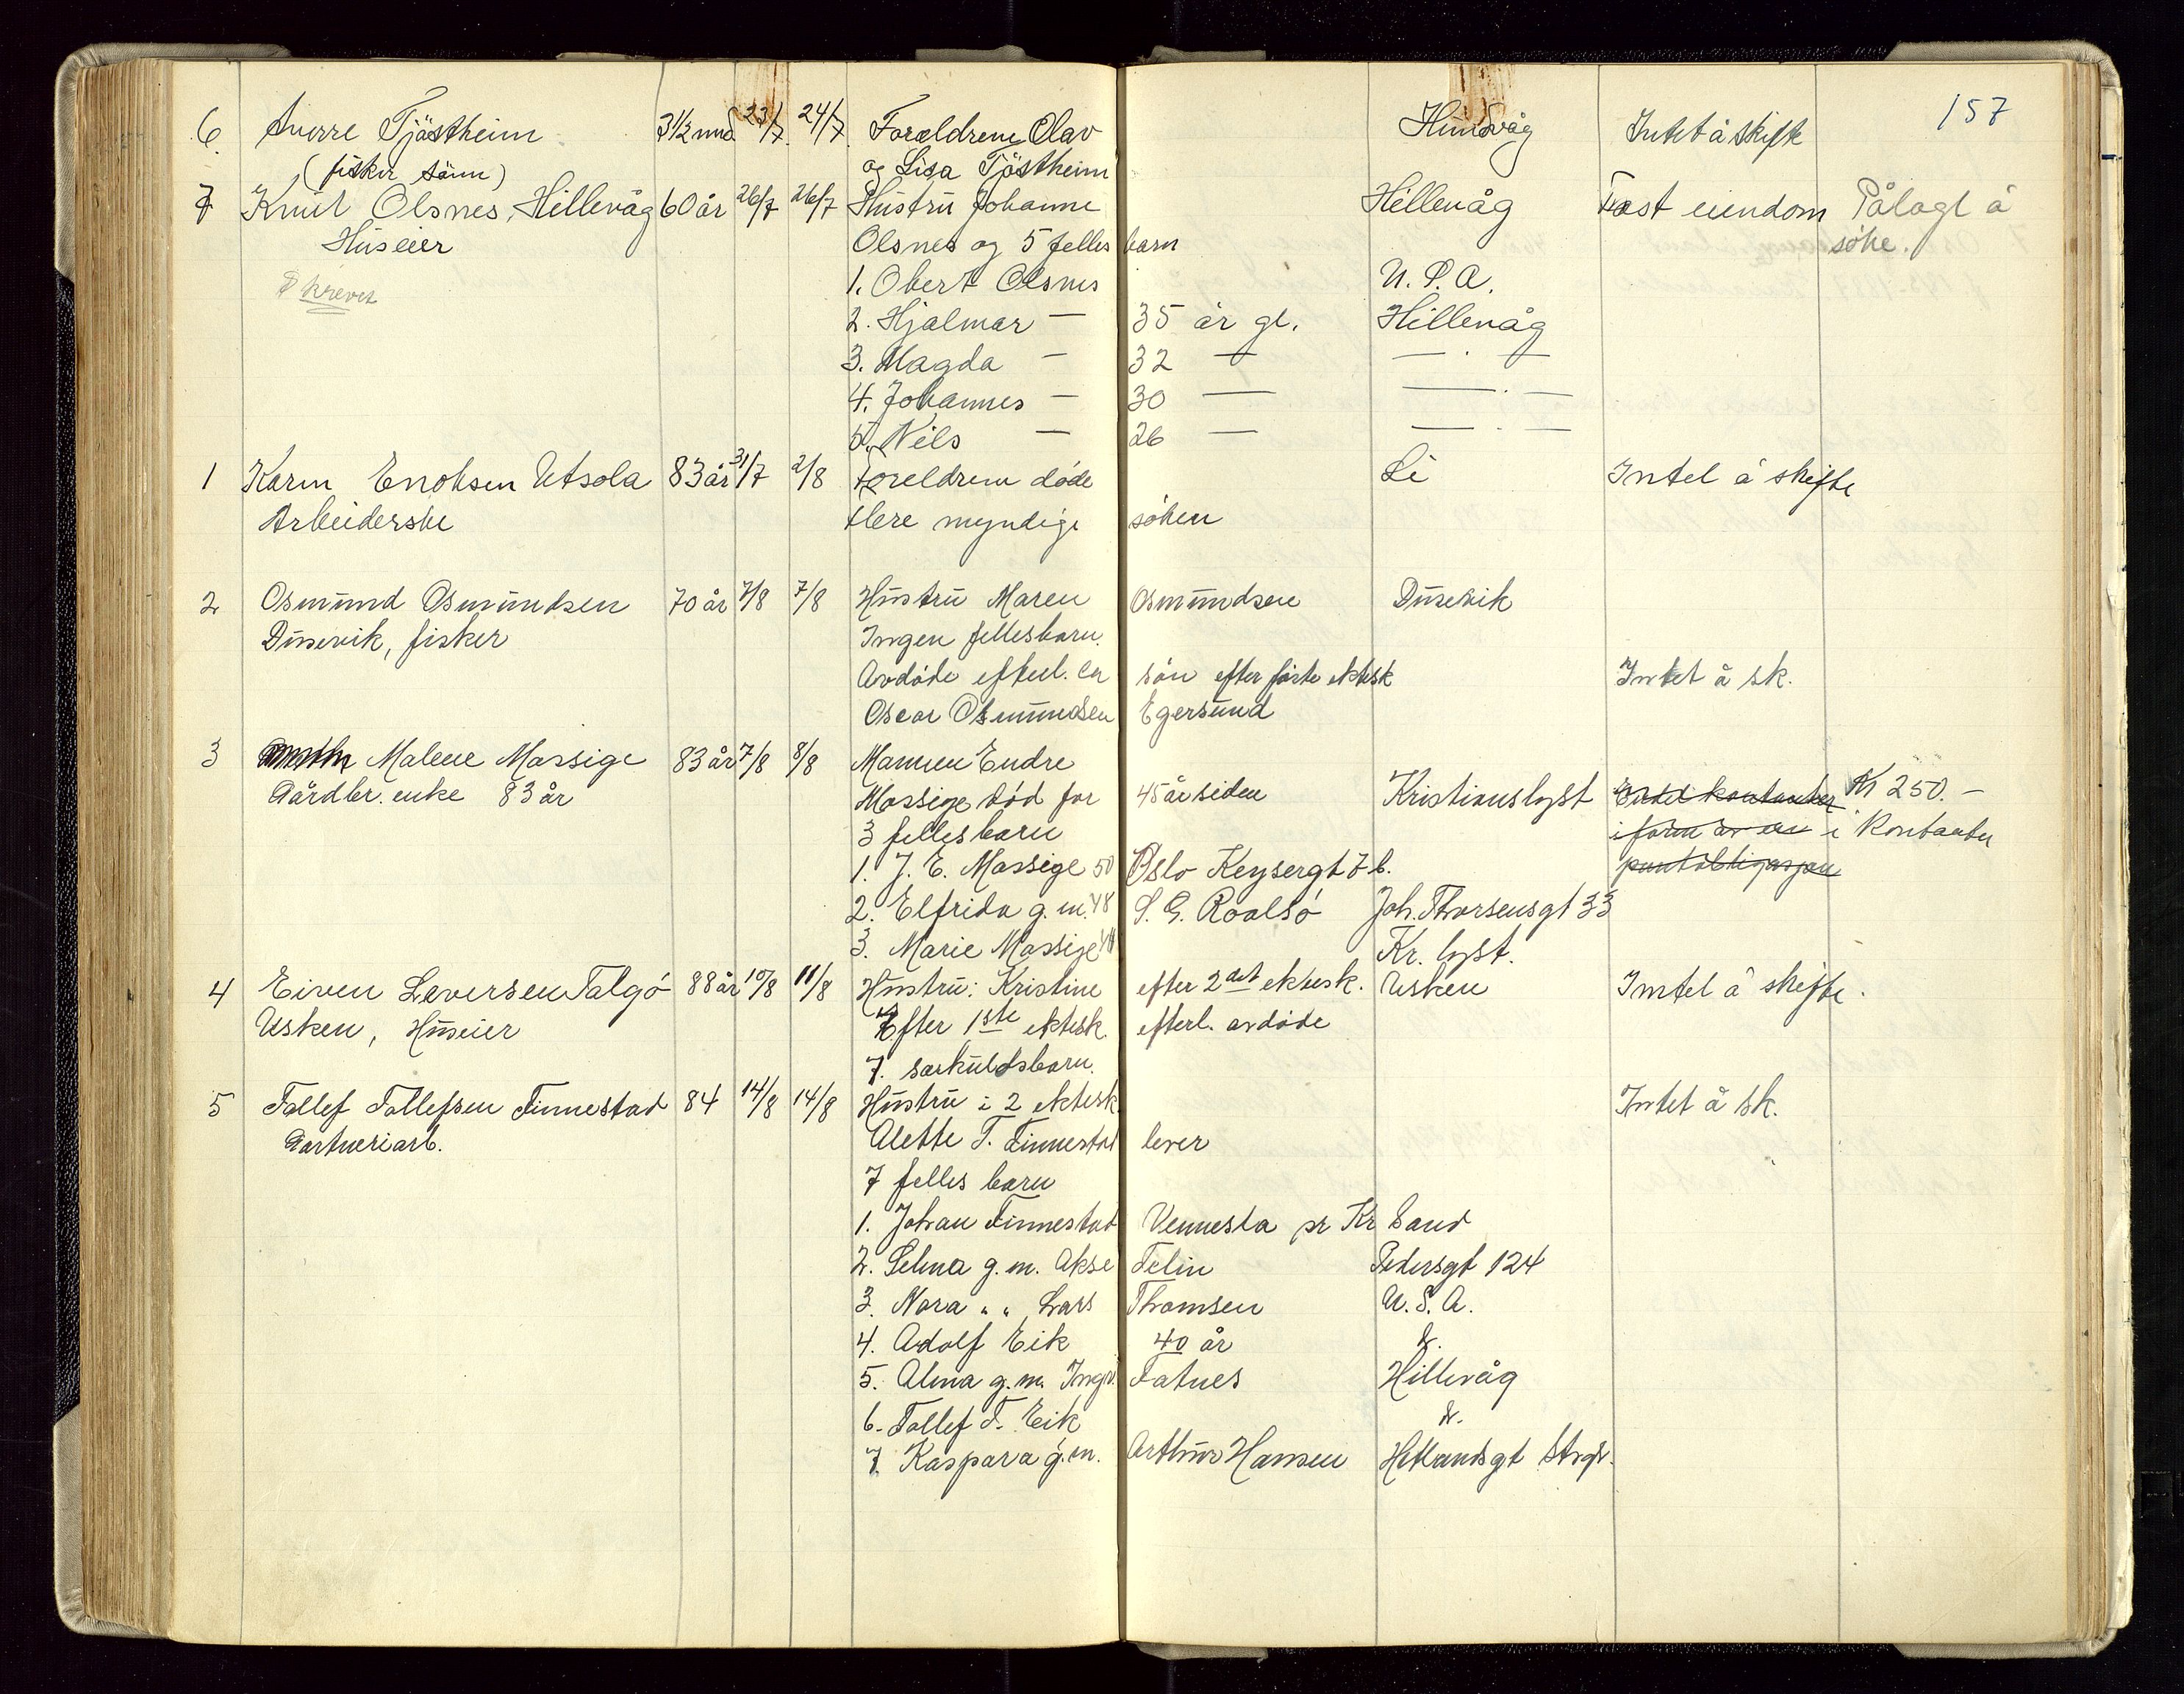 157
6. Sverre Tjöstheim 3 1/2 mnd. 23/7. 24/7 Forældrene Olav Hundvåg Intet å skifte
(fisker sönn) og Lisa Tjöstheim
7 Knut Olsnes, Hillevåg 60 år 26/7 26/7 Hustru Johanne Hillevåg Fast eiendom Pålagt å
Huseier Olsnes og 5 felles barn söke.
krevet 1. Obert Olsnes U.S.A.
2. Hjalmar — 35 år gl. Hillevåg
3. Magda — 32 — — . —
4. Johannes — 30 — — . —
5. Nils — 26 — — . —
1 Karen Enoksen Utsola 83 år 31/7 2/8 Foreldrene döde Li Intet å skifte
Arbeiderske flere myndige söken
2 Osmund Osmundsen 70 år 7/8 7/8 Hustru Maren Osmundsen Dusevik
Dusevik, fisker Ingen fellesbarn.
Avdöde efterl. en sön efter förste ektesk Intet å sk.
Oscar Osmundsen Egersund
3 Malene Mossige 83 år 7/8 8/8 Mannen Endre
Gårdbr. enke 83 år Mossige död for 45 år siden Kristianslyst Endel kontanter Kr 250.—
3 fellesbarn i form av en i kontanter
1. J. E. Mossige 50 Oslo Keysergt 7 b. pantobligasjon
2. Elfrida g.m. 48 S. G. Roalsö Joh. Thorsensgt 33
3. Marie Mossige Kr. lyst.
4 Eiven Seversen Talgö 88 år 10/8 11/8 Hustru: Kristine efter 2det ektesk. Usken Intet å skifte.
Usken, Huseier Efter 1ste ektesk. efterl. avdöde
7. særkuldsbarn.
5 Tollef Tollefsen Finnestad 84 14/8 14/8 Hustru i 2 ektesk. Intet å sk.
Gartneriarb. Alette T. Finnestad lever
7 felles barn
1. Johan Finnestad Vennesla pr Kr Sand
2. Selma g.m. Akse Felin Pedersgt 124
3. Nora " " Lars Thomsen U.S.A.
4. Adolf Eik 40 år d.
5. Alma g.m. Ingv. Fatnes Hillevåg
6. Tollef T. Eik d.
7. Kaspara g.m. Arthur Hansen Hetlandsgt Stvgr.